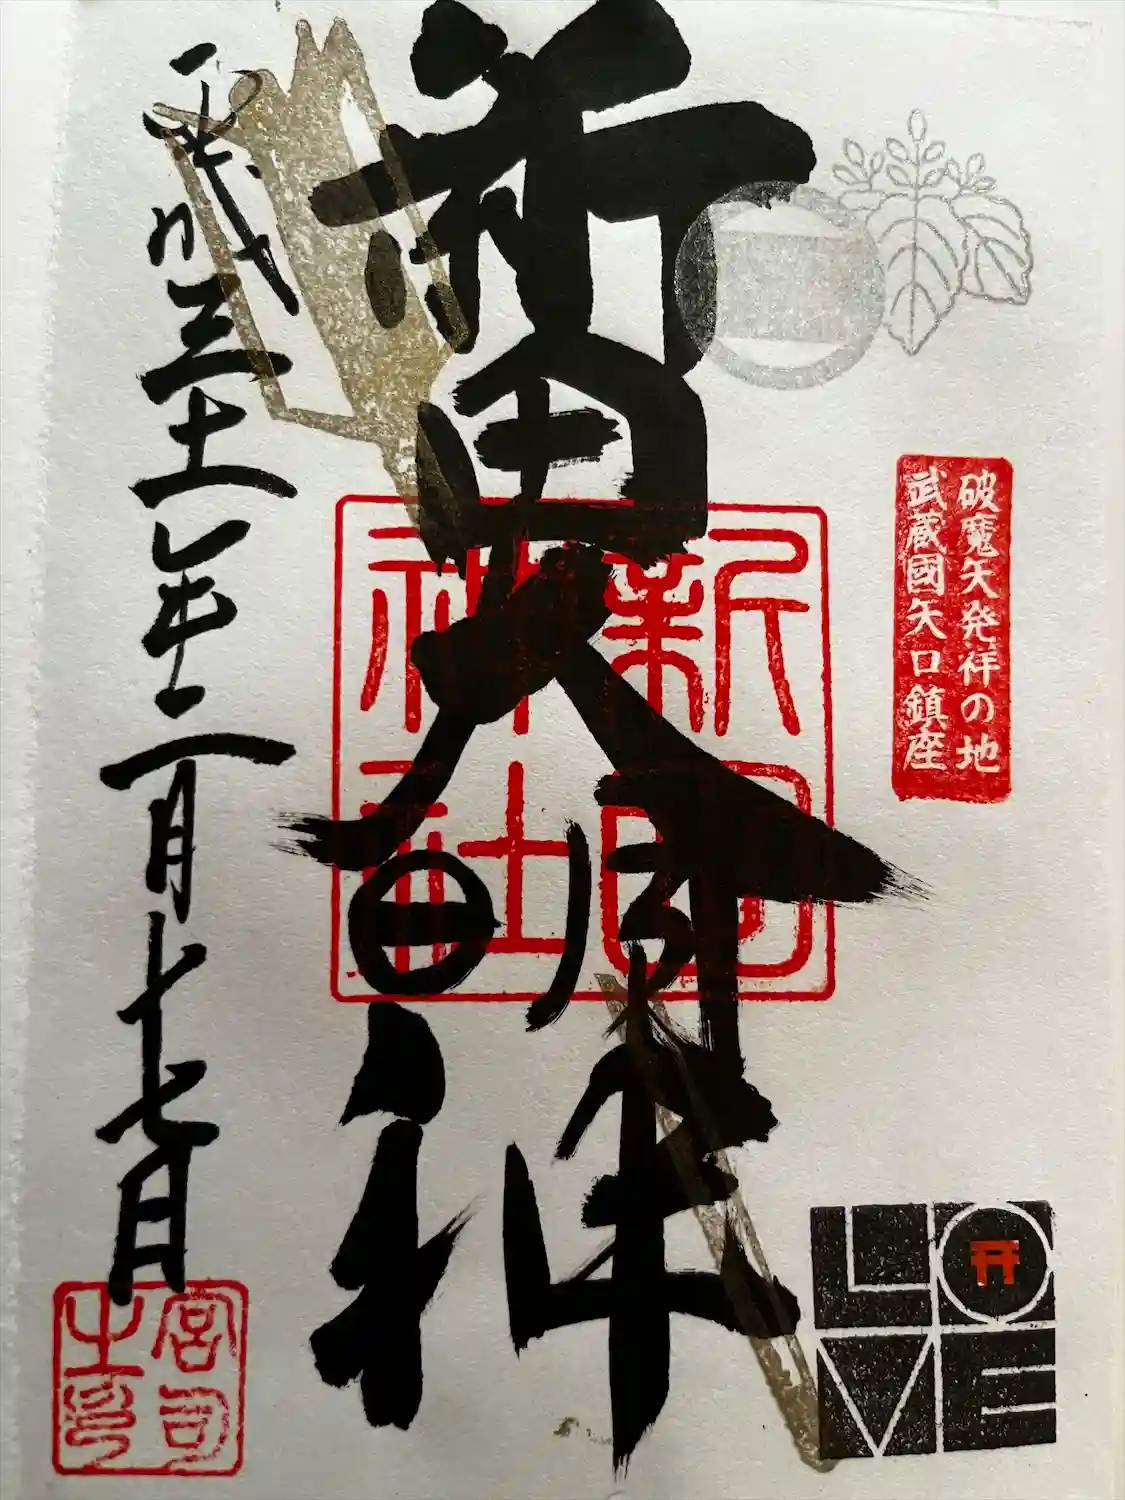 破魔矢発祥の地
武蔵國矢口鎮座
新田大明神
新田
神社
平成三十一年一月十七日
宮司
之印
LO
VE